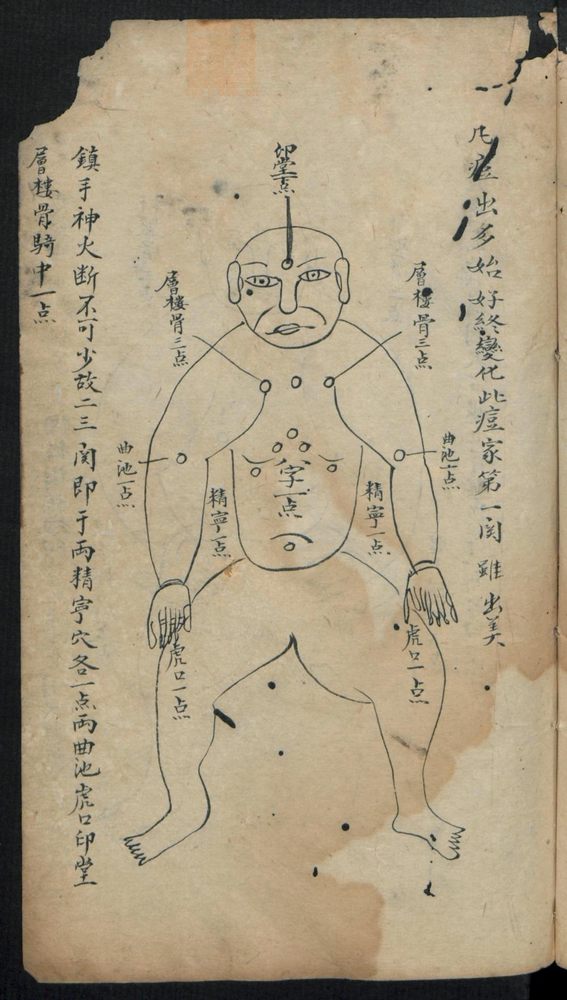 凡痘出多始好終變化此痘家第一関雖出美
印堂一点
層樓骨三点
層樓骨三点
曲池一点
曲池一点
八字一点
精寧一点
精寧一点
虎口一点
虎口一点
鎮手神火断不可少故二三関即于両精寧穴各一点両曲池虎口印堂
層樓骨騎中一点